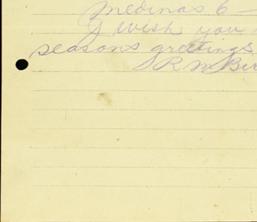 Medinas 6 —
I wish you
seasons greetings
R M